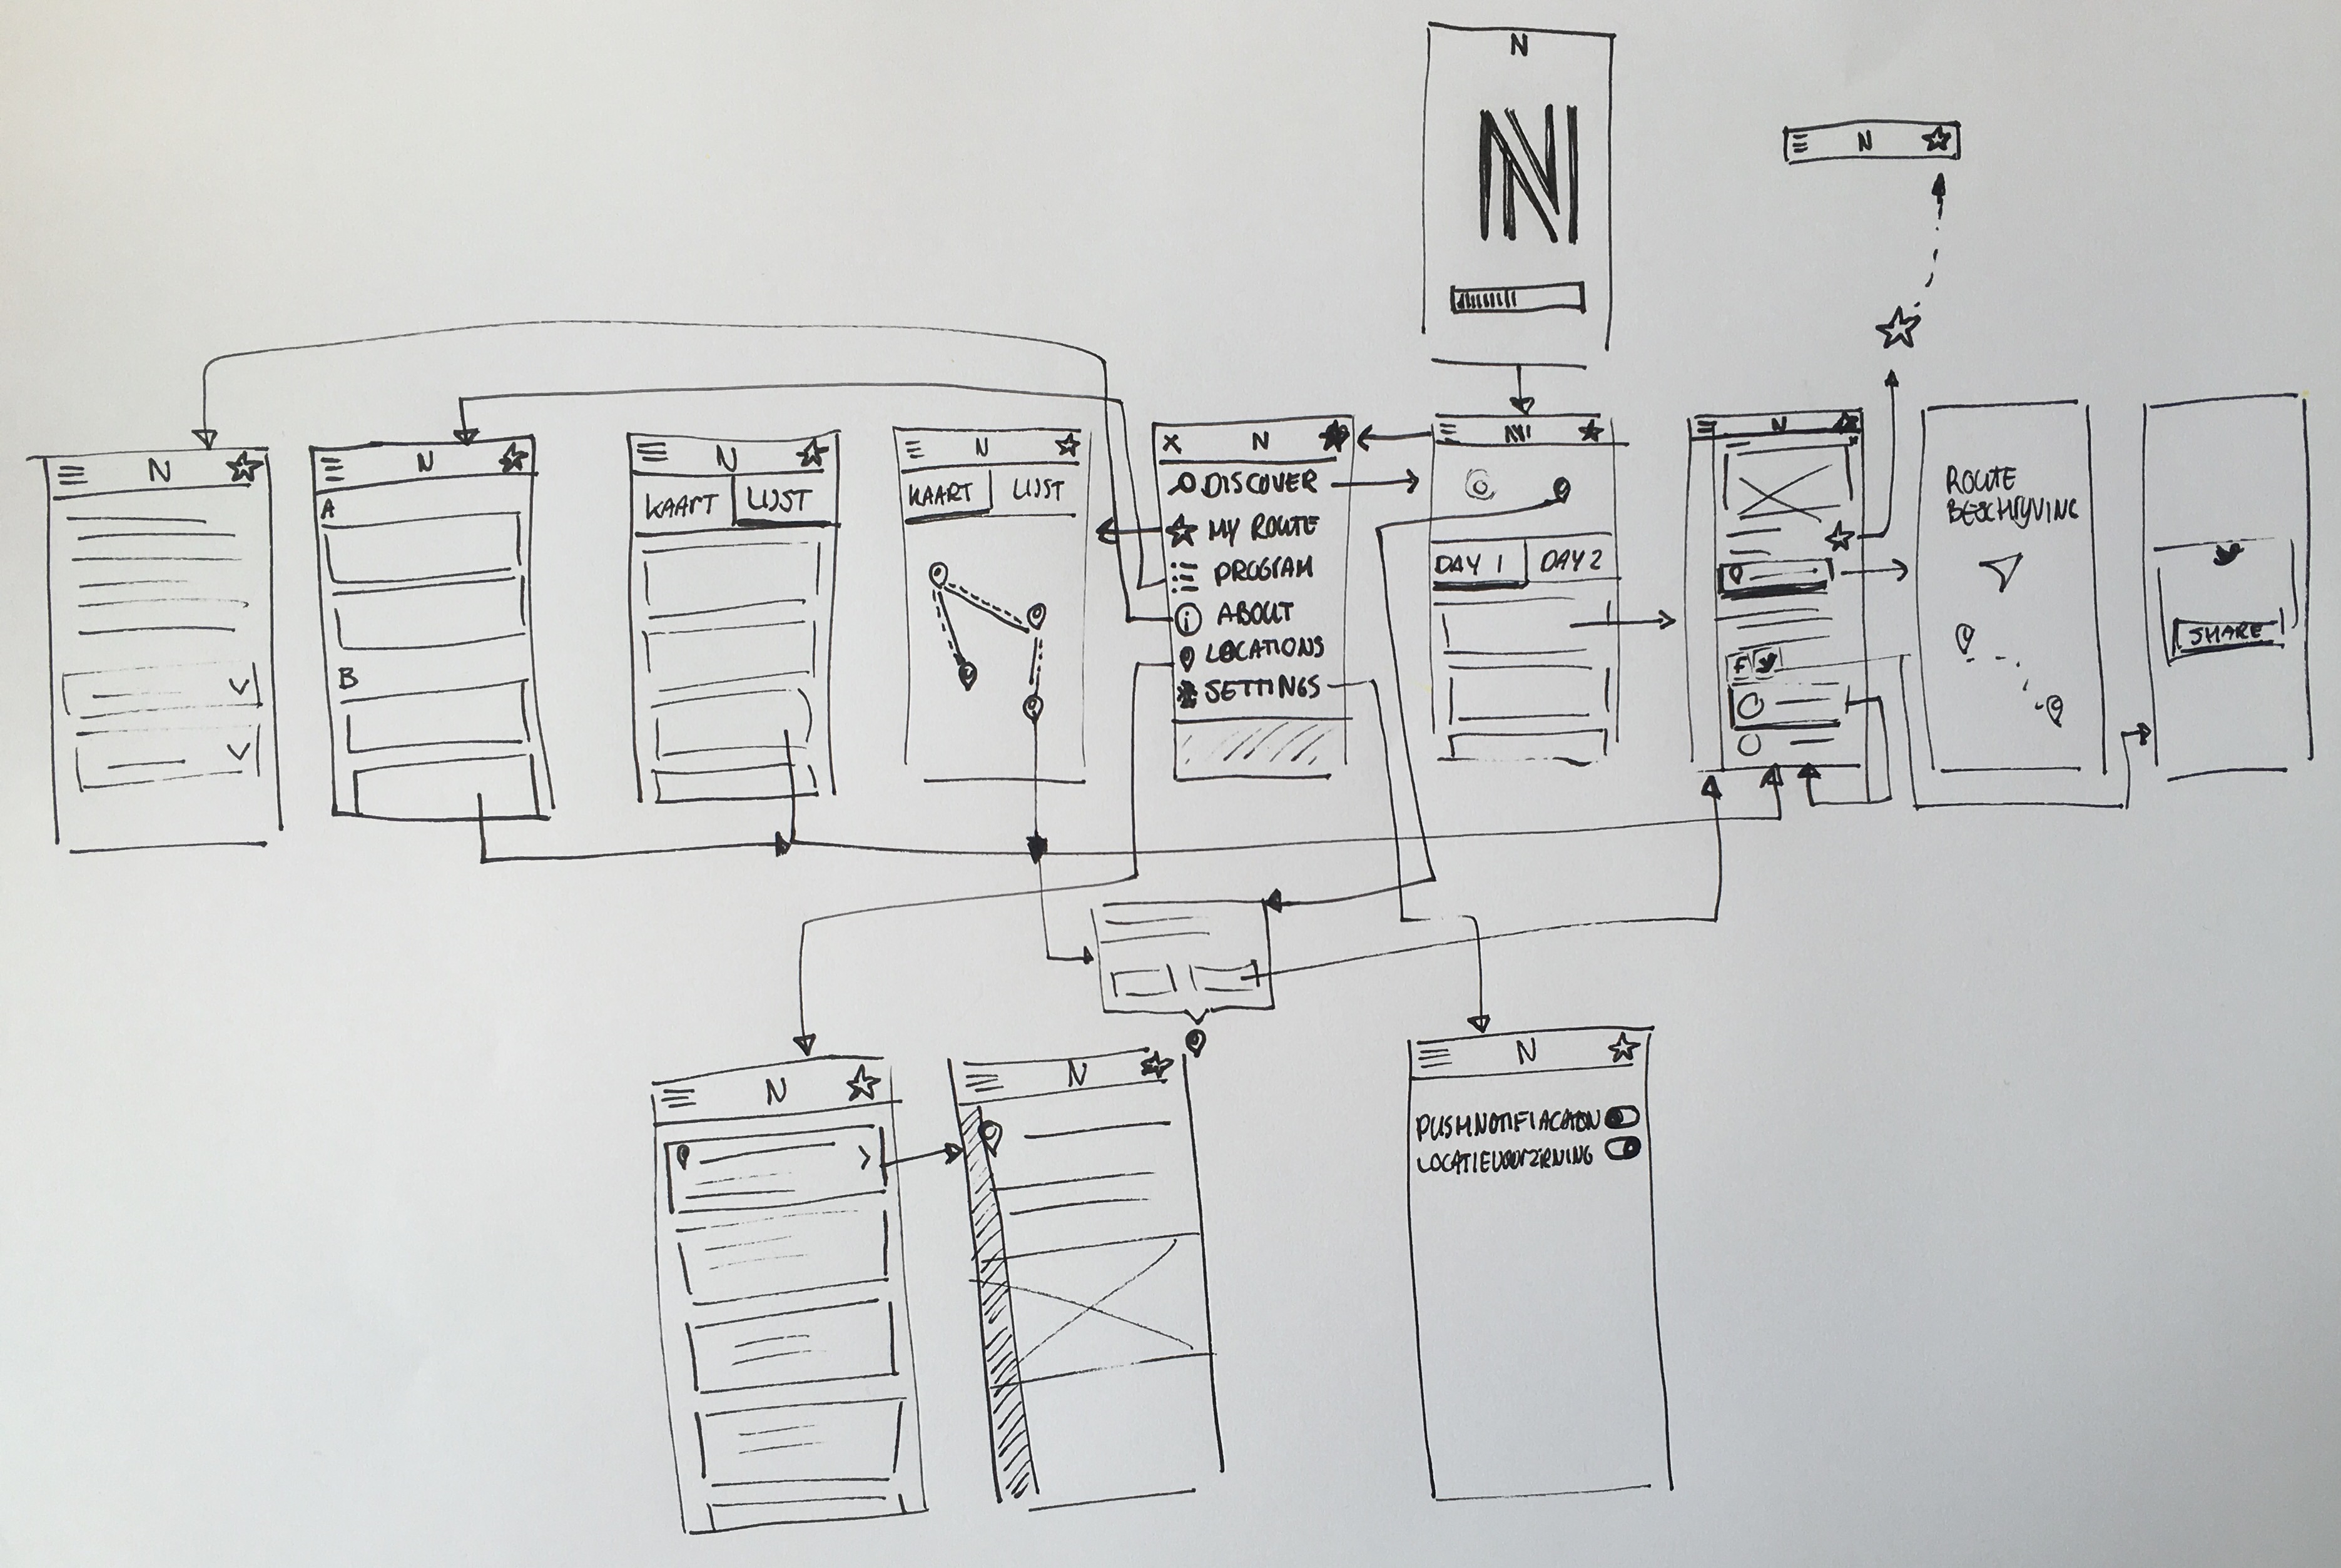 N
N
N
N
N
N
KAART
LIJST
N
KAART
LIJST
X
N
DISCOVER
MY ROUTE
PROGRAM
ABOUT
LOCATIONS
SETTINGS
DAY 1
DAY 2
N
f
ROUTE
BESCHRIJVING
SHARE
A
B
N
N
N
PUSHNOTIFIACATION